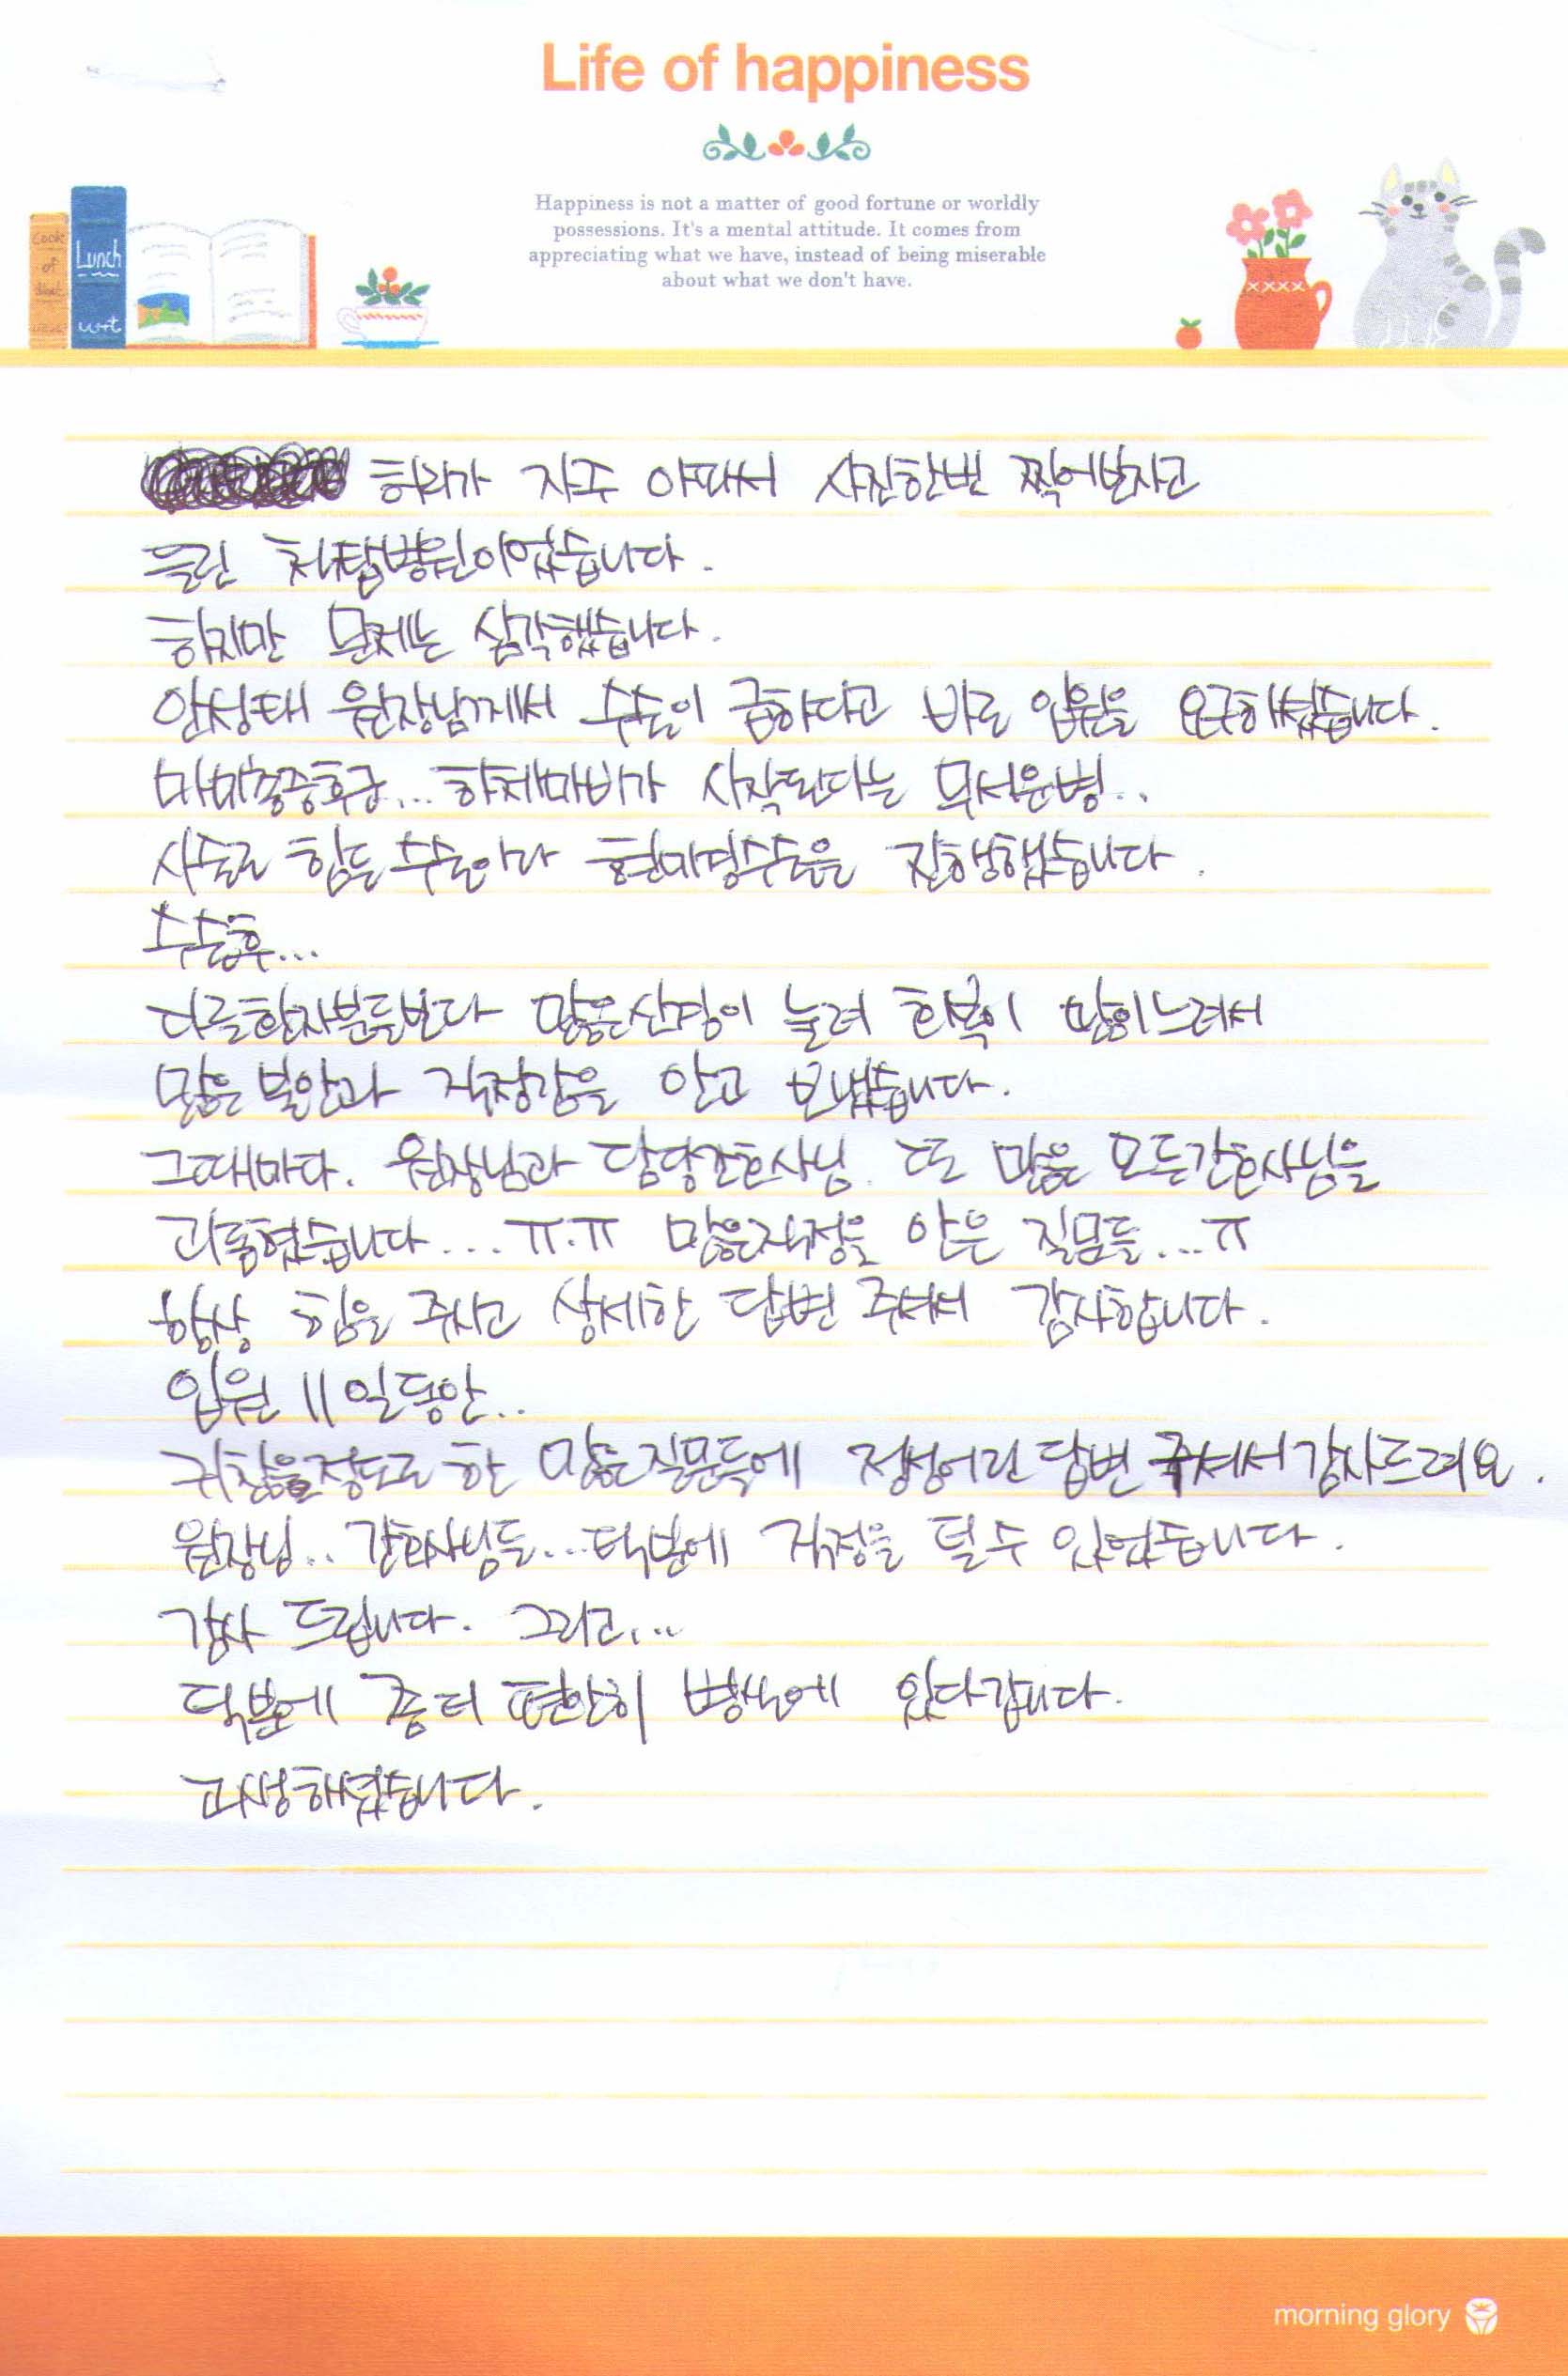 Life of happiness
Happiness is not a matter of good fortune or worldly
possessions. It's a mental attitude. It comes from
appreciating what we have, instead of being miserable
about what we don't have.
Cook
of
Lunch
허리가 자주 아파서 사진한번 찍어보자고
들린 척탑병원이었습니다.
하지만 문제는 심각했습니다.
안성태 원장님께서 수술이 급하다고 바로 입원을 요구하셨습니다.
마미총증후군... 하체마비가 시작된다는 무서운병..
시술로 힘든 수술이라 현미경수술을 진행했습니다.
수술후...
다른환자분들보다 많은신경이 눌려 회복이 많이느려서
많은 불안과 걱정감을 안고 보냈습니다.
그때마다. 원장님과 담당간호사님. 또 많은 모든간호사님을
괴롭혔습니다... ㅠ.ㅠ 많은걱정을 안은 질문들...ㅠ
항상 힘을 주시고 상세한 답변 주셔서 감사합니다.
입원 11일동안..
귀찮을정도로 한 많은질문들에 정성어린 답변 주셔서감사드려요.
원장님.. 간호사님들... 덕분에 걱정을 덜수 있었습니다.
감사 드립니다. 그리고...
덕분에 좀더 편안히 병상에 있다갑니다.
고생하셨습니다.
morning glory